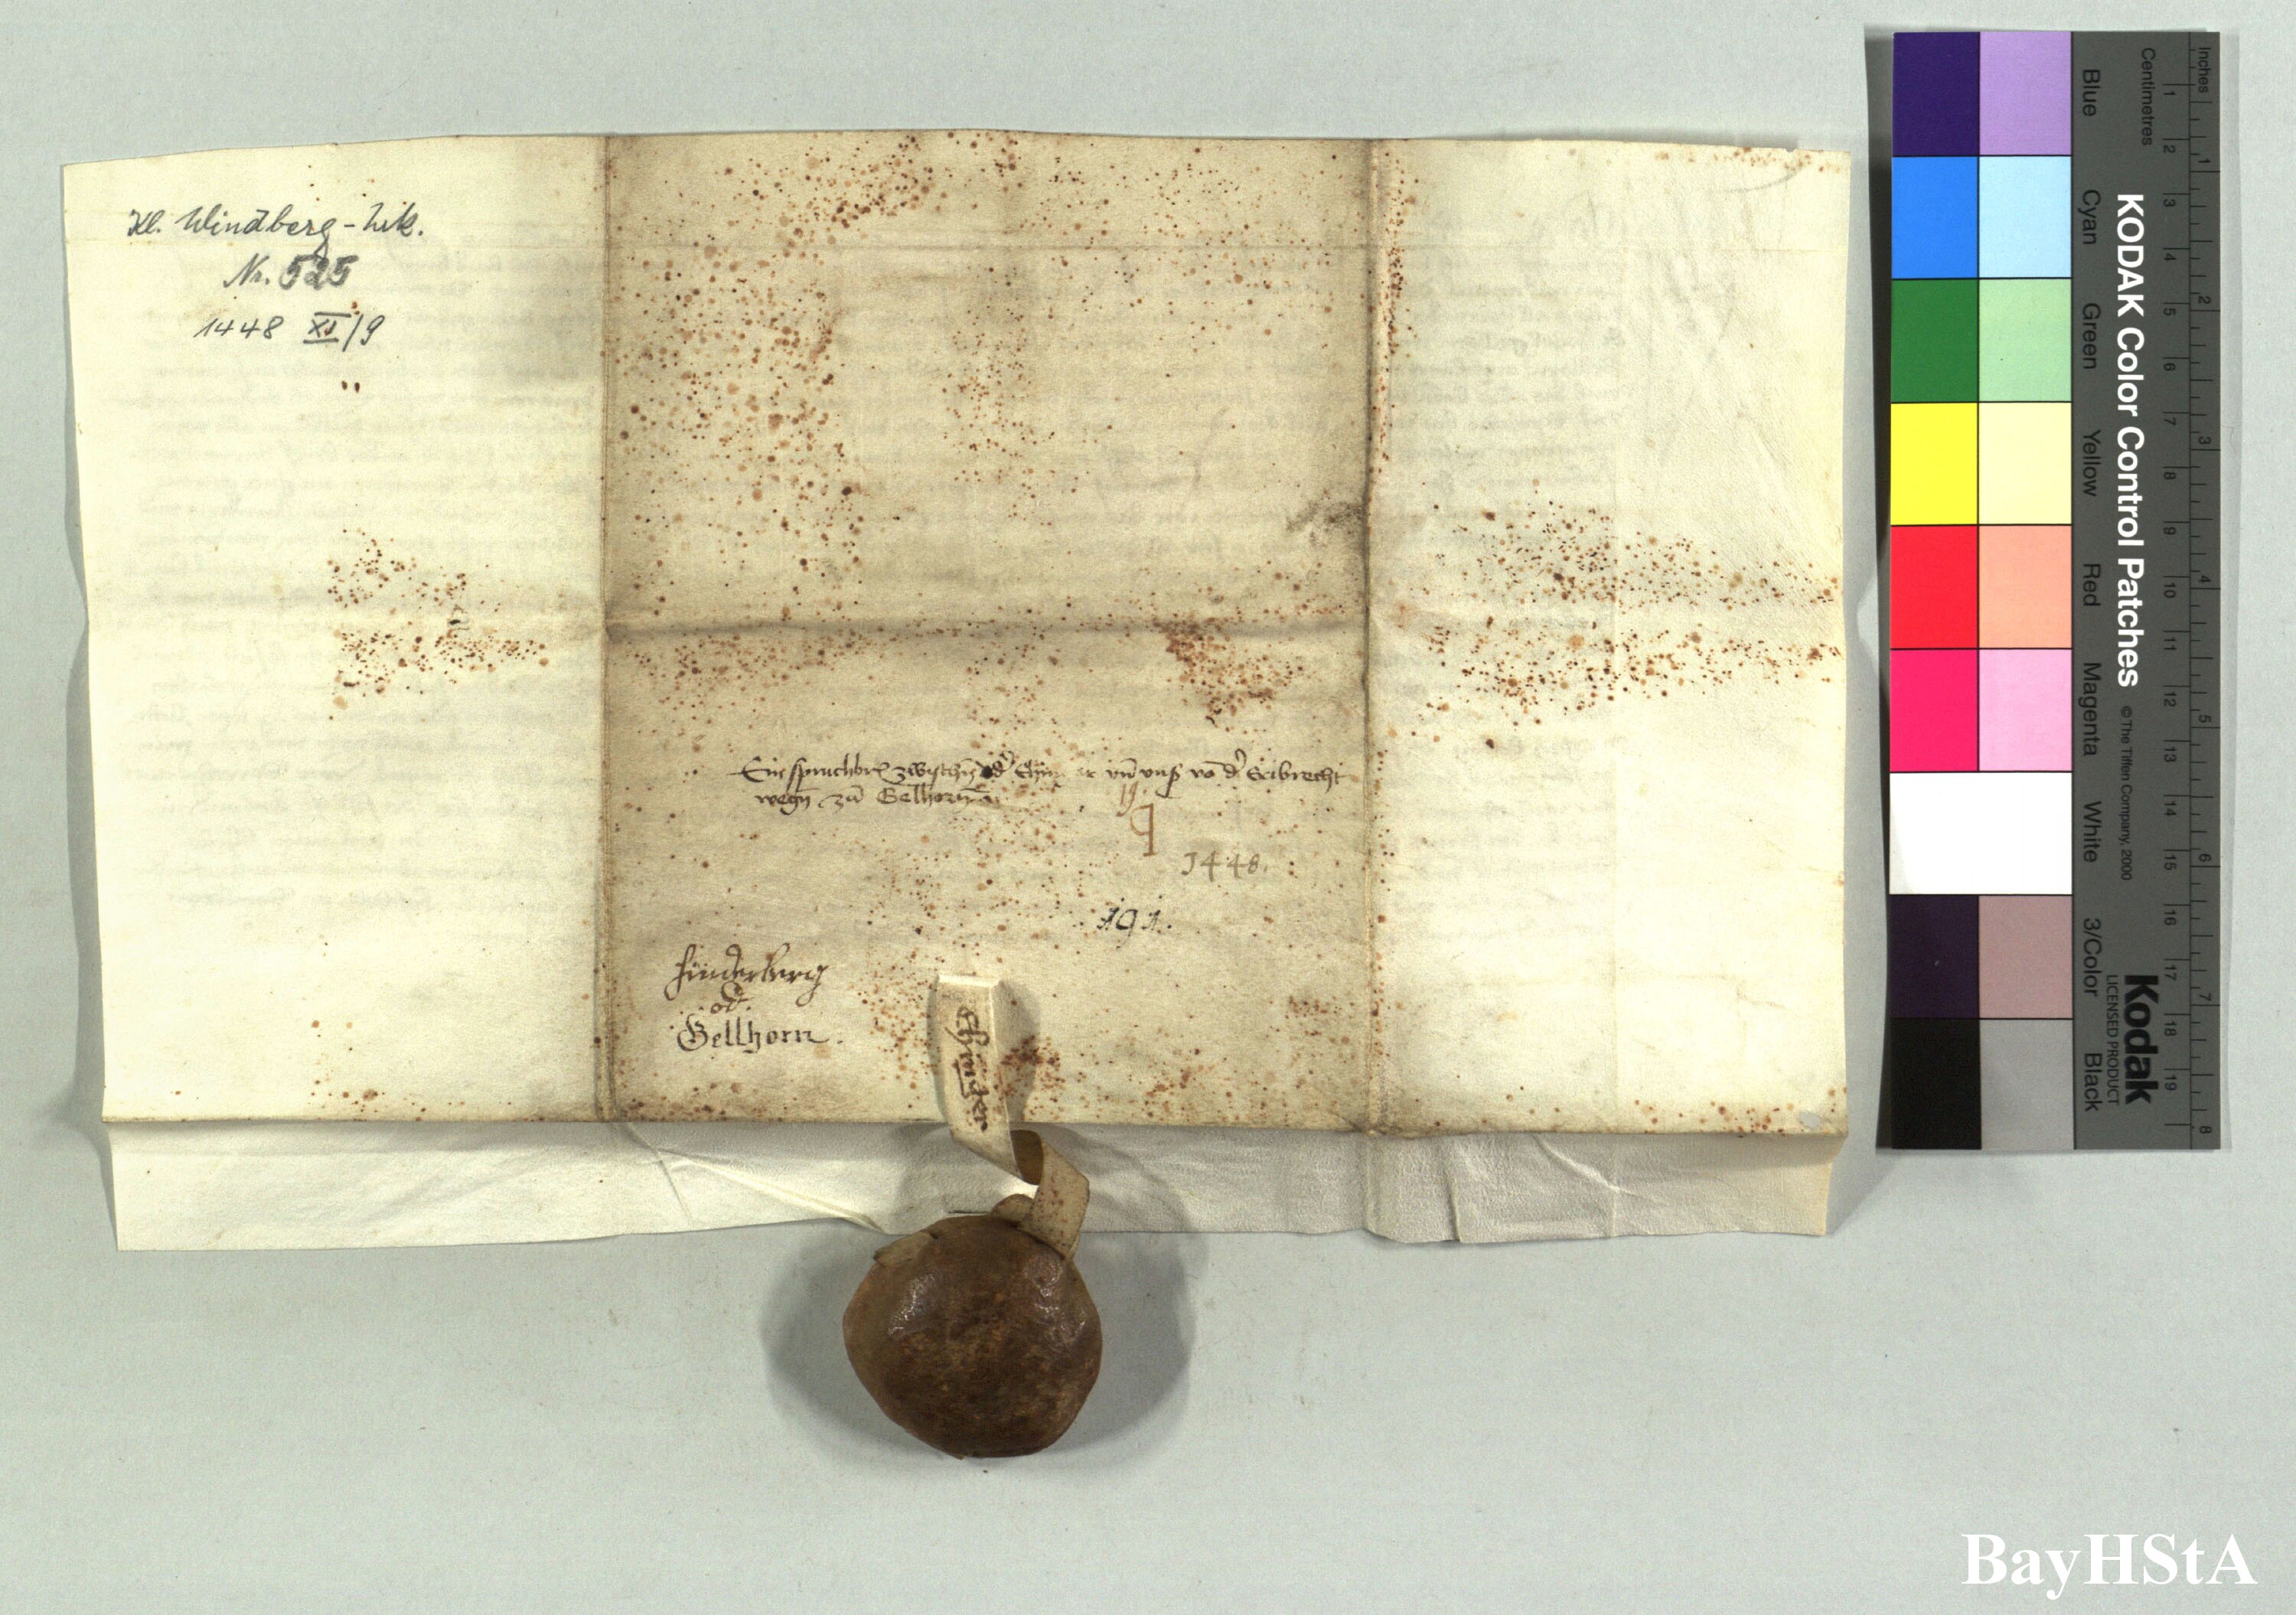 Kl. Windberg-Urk.
Nr. 525
1448 XI/9
Ein spruchbrf zwischn d' vn̄ vnß vō d' Erbrecht
wegn̄ zu Gelhorn
19
1448.
191.
Hinderberg
od.
Gellhorn.
KODAK Color Control Patches
© The Tiffen Company, 2000
Kodak
LICENSED PRODUCT
Inches
Centimetres
Blue
Cyan
Green
Yellow
Red
Magenta
White
3/Color
Black
1 2 3 4 5 6 7 8 9 10 11 12 13 14 15 16 17 18 19
1 2 3 4 5 6 7 8
BayHStA